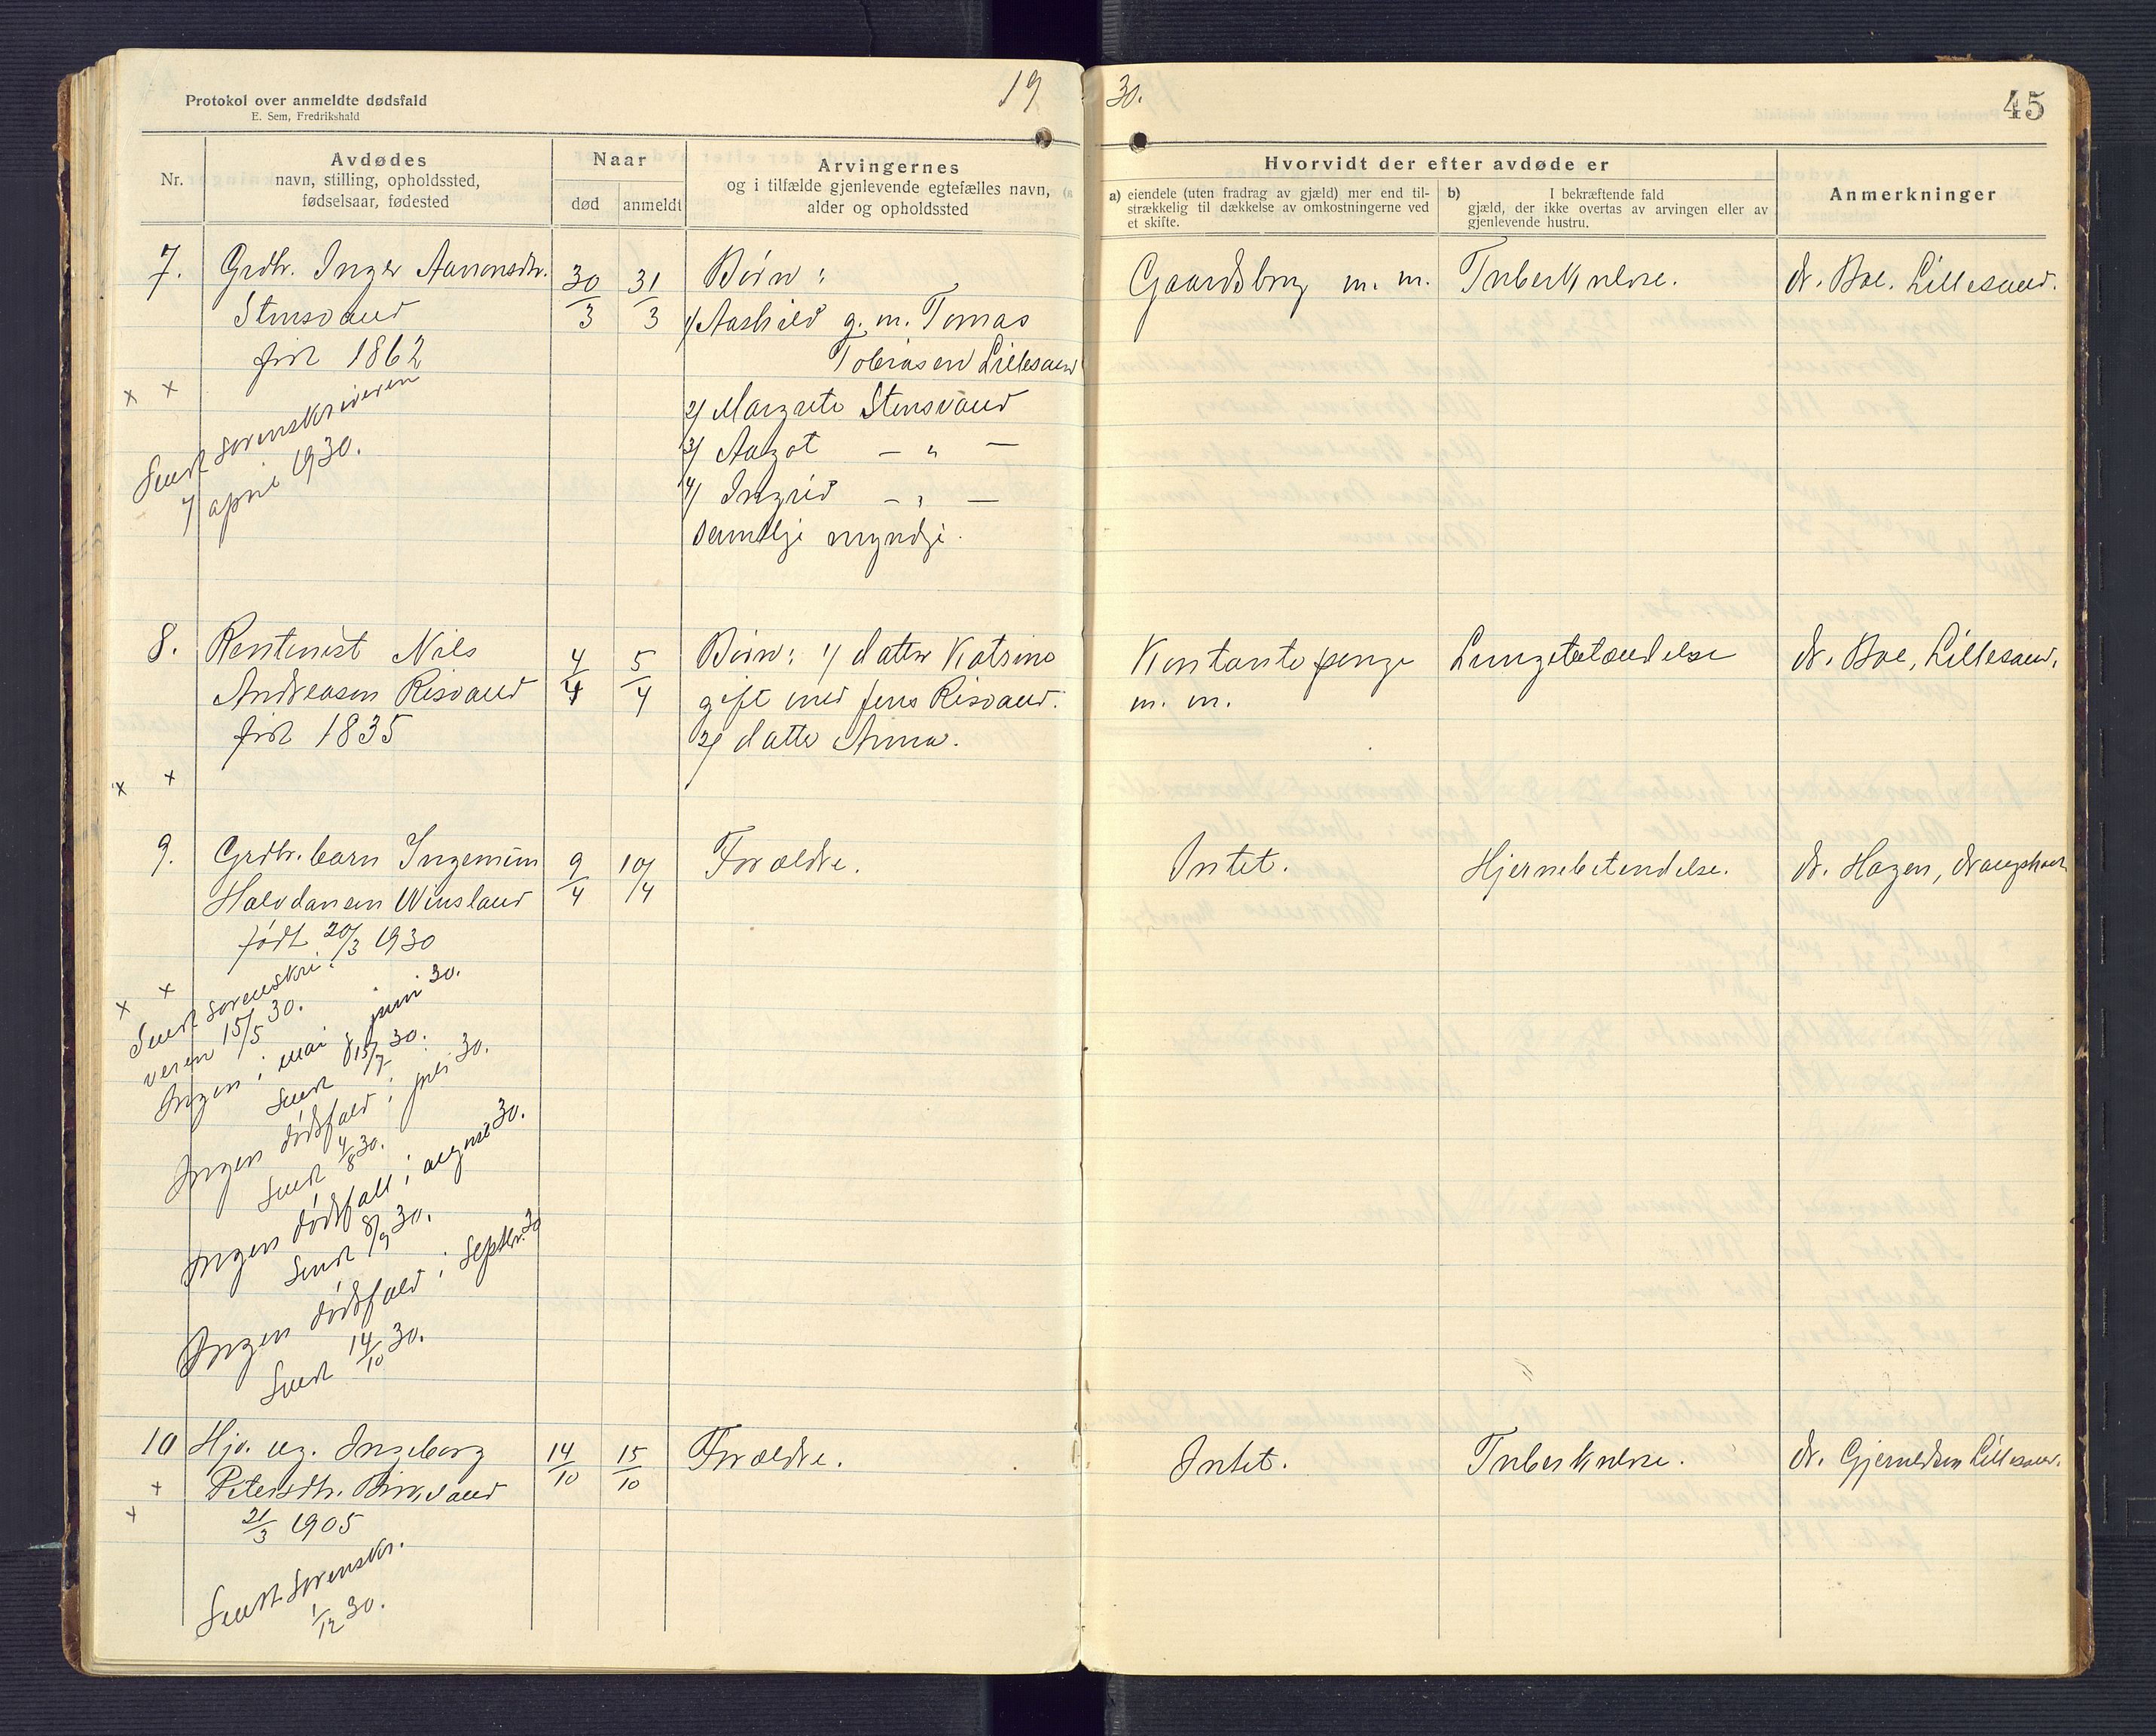 Protokol over anmeldte dødsfald
E. Sem, Fredrikshald
19
30.
45
Nr.
Avdødes
navn, stilling, opholdssted,
fødselsaar, fødested
Naar
død
anmeldt
Arvingernes
og i tilfælde gjenlevende egtefælles navn,
alder og opholdssted
Hvorvidt der efter avdøde er
a) eiendele (uten fradrag av gjæld) mer end til-
strækkelig til dækkelse av omkostningerne ved
et skifte.
b) I bekræftende fald
gjæld, der ikke overtas av arvingen eller av
gjenlevende hustru.
Anmerkninger
7.
Grdbr. Inger Aanonsdtr.
Stensvand
född 1862
x x
Sendt sorenskriveren
7 april 1930.
30/3
31/3
Börn:
1/ Aashild g. m. Tomas
Tobiasen Lillesand
2/ Margrete Stensvand
3/ Aagot — " —
4/ Ingrid — " —
samtlige myndige.
Gaardsbrug m. m.
Tuberkulose.
dr. Boe. Lillesand.
8.
Rentenist Nils
Andreasen Risvand
född 1835
x x
4/4
5/4
Börn: 1/ datter Katrine
gift med Jens Risvand.
2/ datter Anna.
Kontante penge
m. m.
Lungebetændelse
dr. Boe, Lillesand.
9.
Grdbr. barn Ingemann
Halvdansen Vinsland
født 20/3 1930
x x
9/4
10/4
Forældre.
Intet.
Hjernebetendelse.
dr. Hagen,
Sendt sorenskri-
veren 15/5 30.
Ingen i mai & juni 30.
Sendt 15/7 30.
Ingen dödsfald i juli 30.
Sendt 4/8 30.
Ingen dödsfall i august 30.
Sendt 8/9 30.
Ingen dödsfald i Septbr. 30
Sendt 14/10 30.
10
Hjv. ug. Ingeborg
Petersdtr. Birkeland
21/3 1905
x
x
14/10
15/10
Forældre.
Intet.
Tuberkulose.
dr. Gjeruldsen Lillesand.
Sendt Sorenskr.
1/12 30.